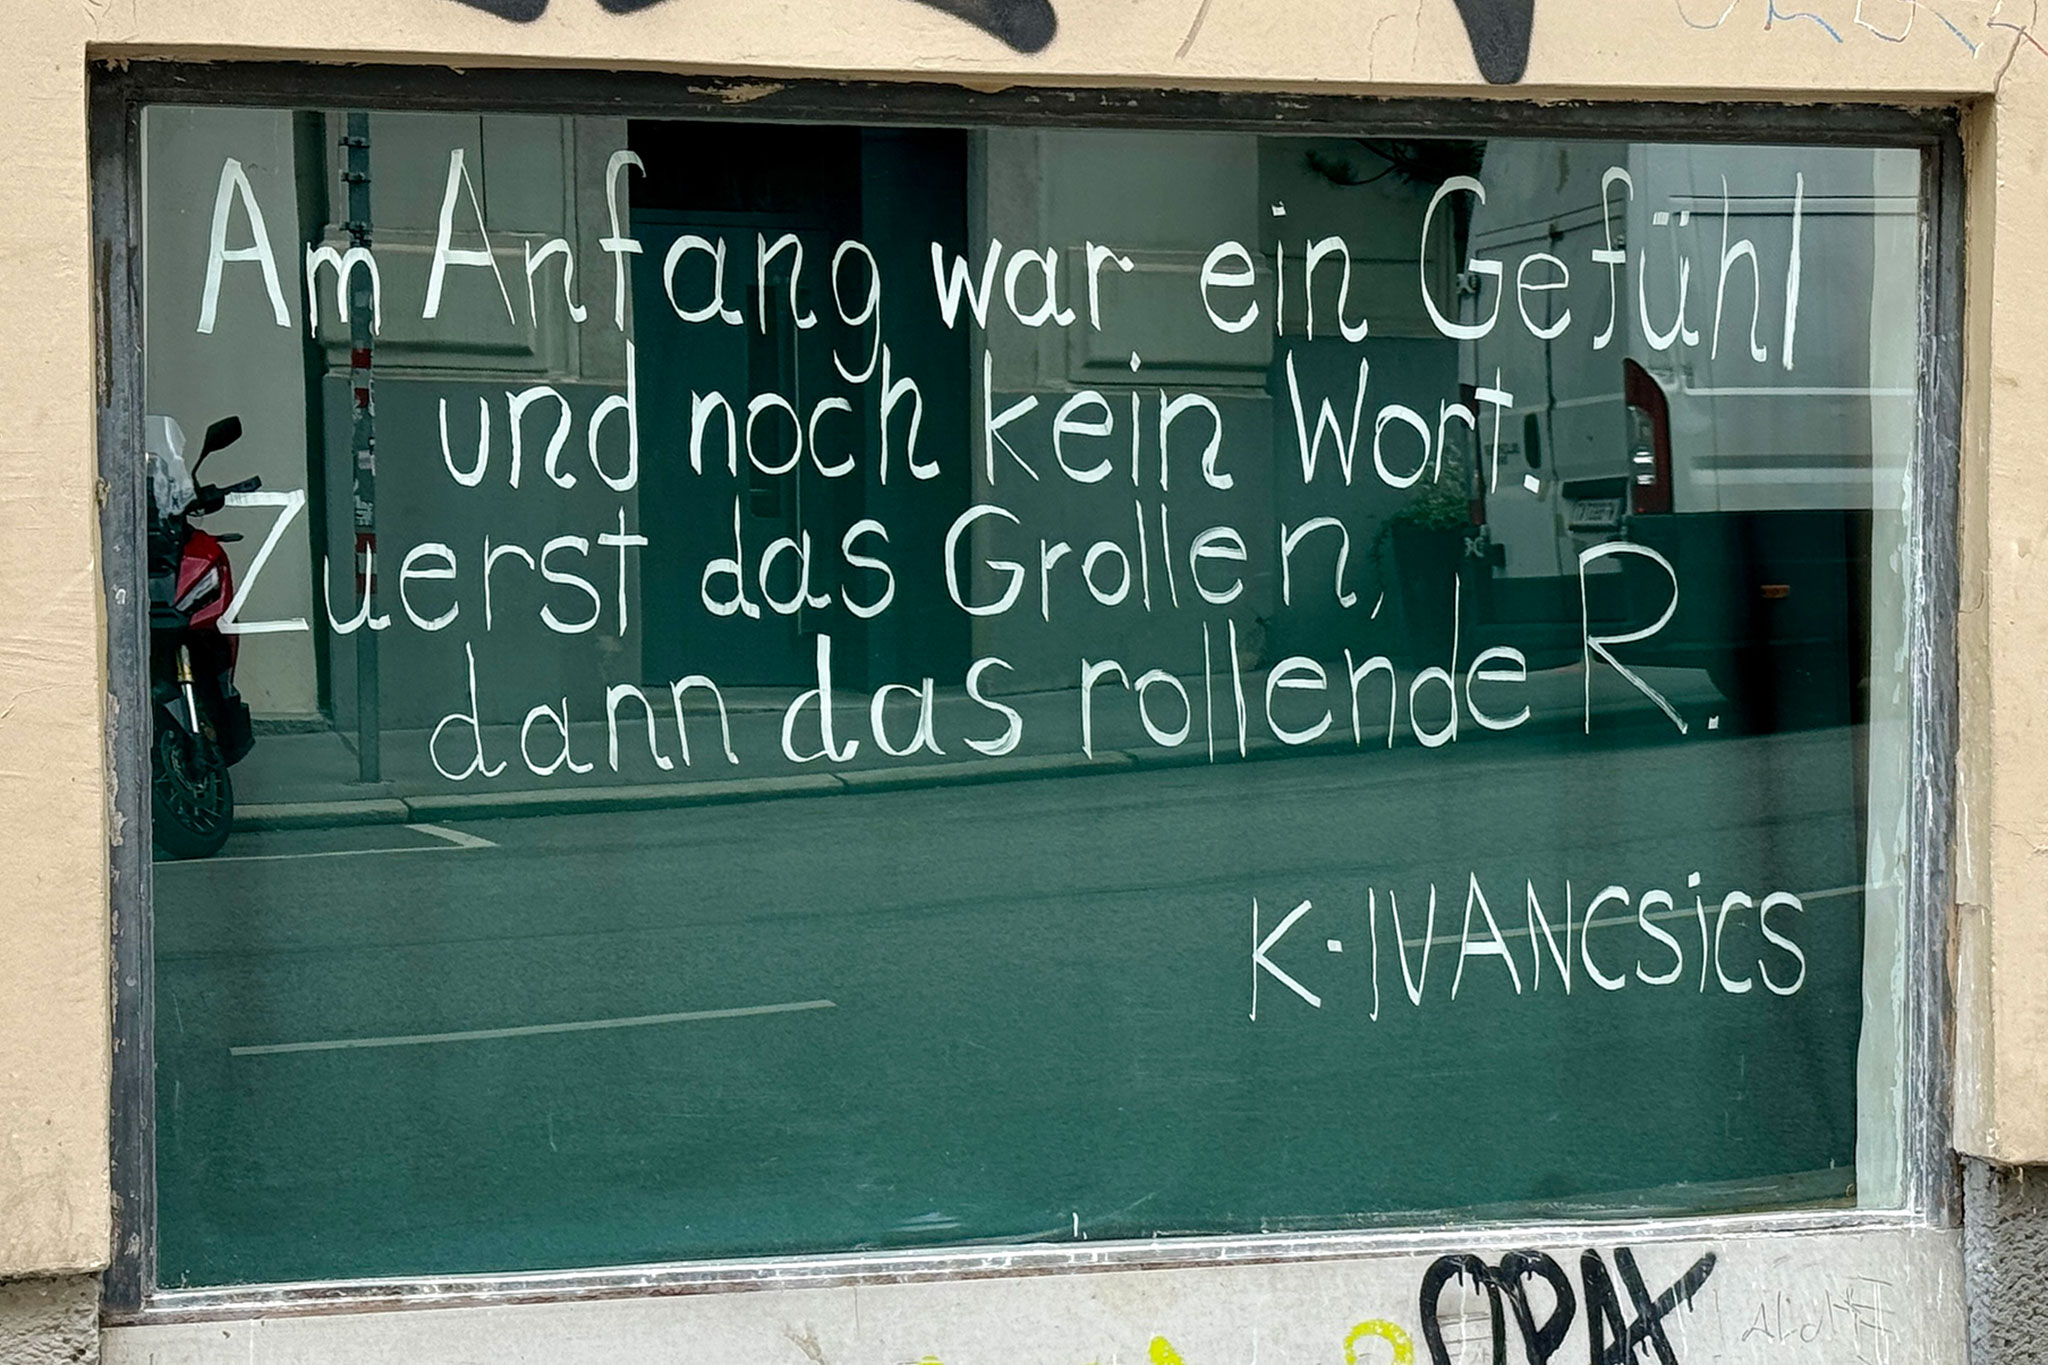 Am Anfang war ein Gefühl
und noch kein Wort.
Zuerst das Grollen,
dann das rollende R.
K. IVANCSiCS
OPAK